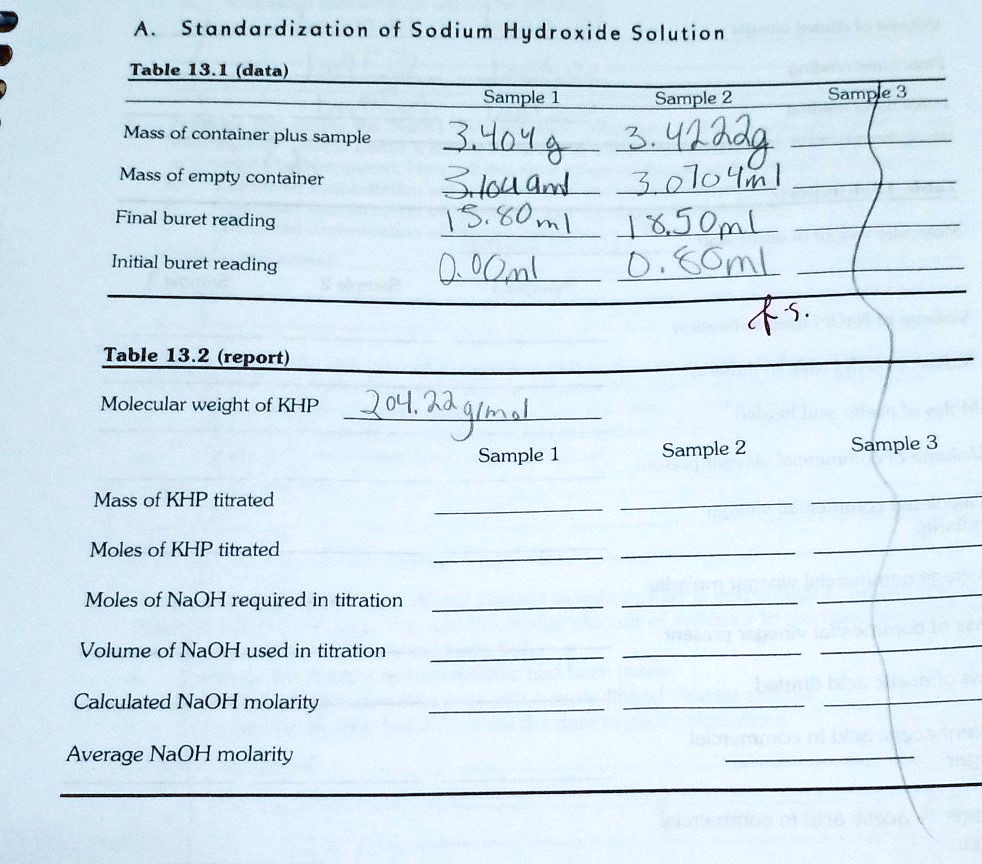 A. Standardization of Sodium Hydroxide Solution
Table 13.1 (data)
Sample 1 Sample 2 Sample 3
Mass of container plus sample 3.404g 3.4222g
Mass of empty container 3.0704ml
Final buret reading 15.80ml 18.50ml
Initial buret reading 0.00ml 0.80ml
Table 13.2 (report)
Molecular weight of KHP 204.22g/mol
Sample 1 Sample 2 Sample 3
Mass of KHP titrated
Moles of KHP titrated
Moles of NaOH required in titration
Volume of NaOH used in titration
Calculated NaOH molarity
Average NaOH molarity